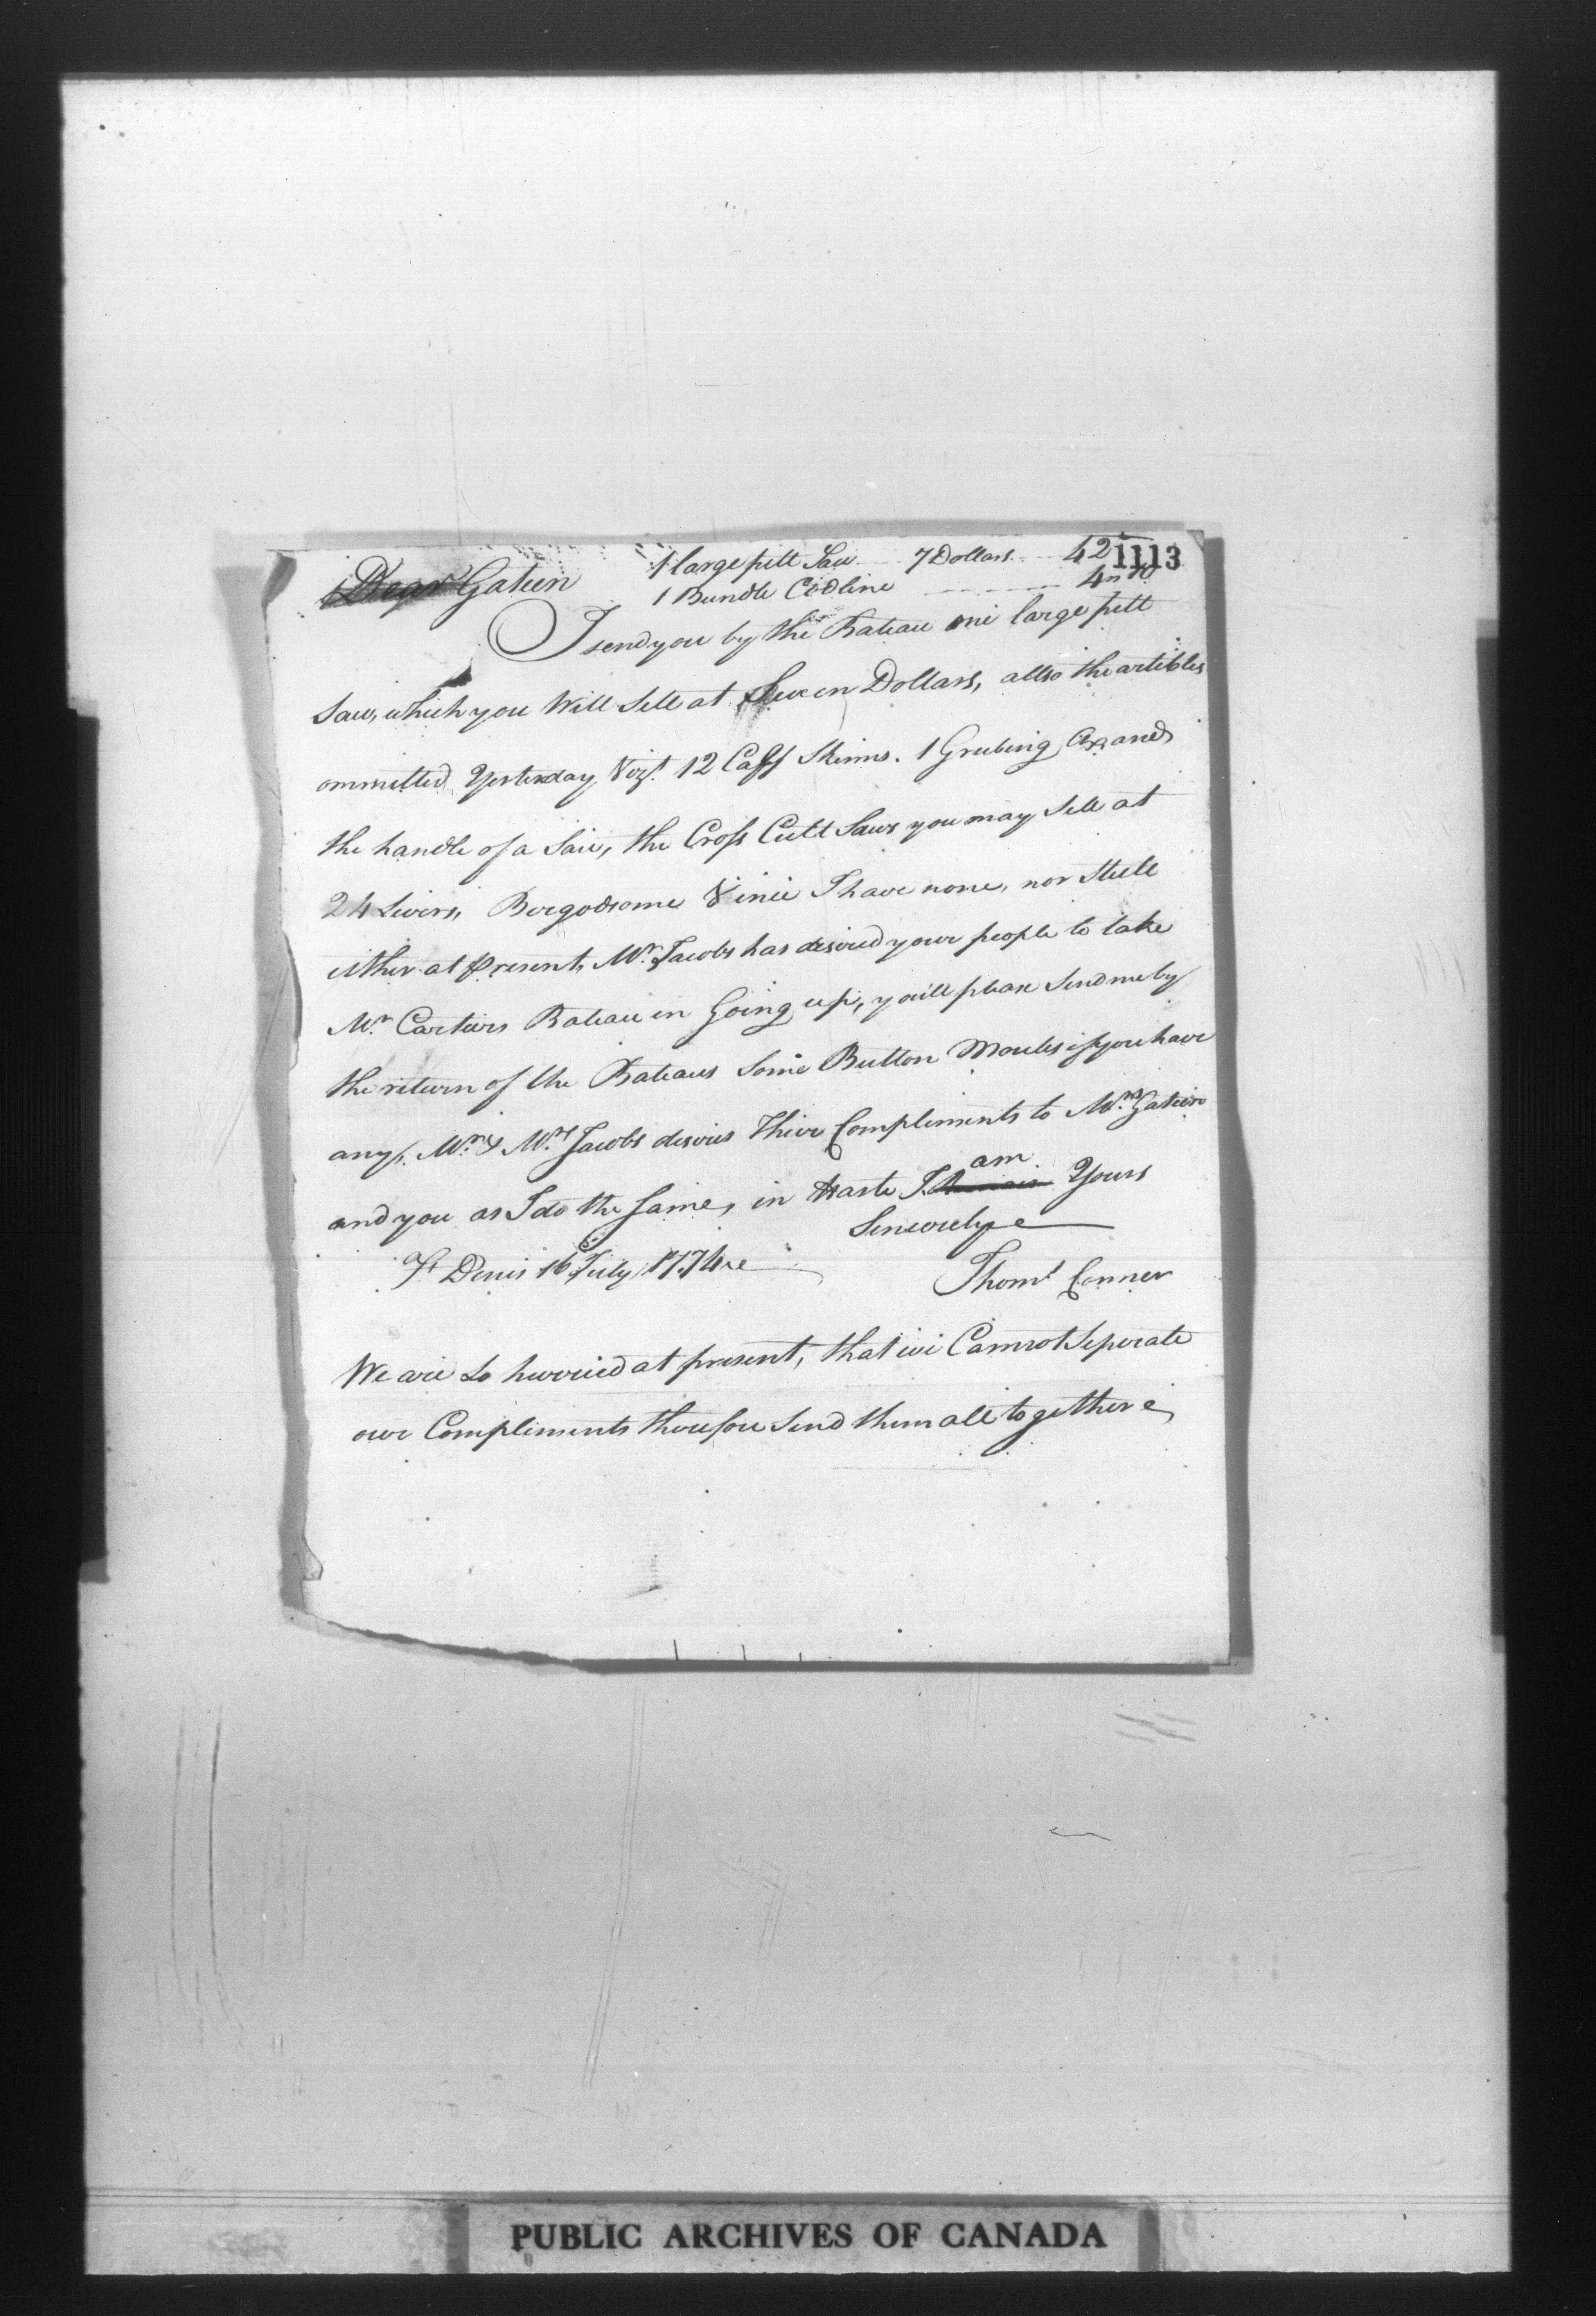 1113
1 large pitt Saw 7 Dollars 42
Dear Gatien 1 Bundle Codline
I send you by the Bateau one large pitt
Saw, which you Will Sell at Seven Dollars, allso the articles
ommitted Yesterday, Vizt. 12 Caff Skinns. 1 Grubing Ax and
the handle of a Saw, the Cross Cutt Saws you may Sell at
24 Livers, I have none, nor Steele
either at present, Mr. Jacobs has desired your people to take
Mr. Cartiers Bateau in Going up, youll please Send me by
the return of the Bateaus Some Button Moules if you have
any. Mr. & Mrs. Jacobs desires Their Compliments to Mrs. Gatien
am
and you as I do the Same, in Haste I Yours
Sincerely
St Denis 16 July 1774
Thoms Conner
We are So hurried at present, that we Cannot Seperate
our Compliments therefore Send them all together
PUBLIC ARCHIVES OF CANADA